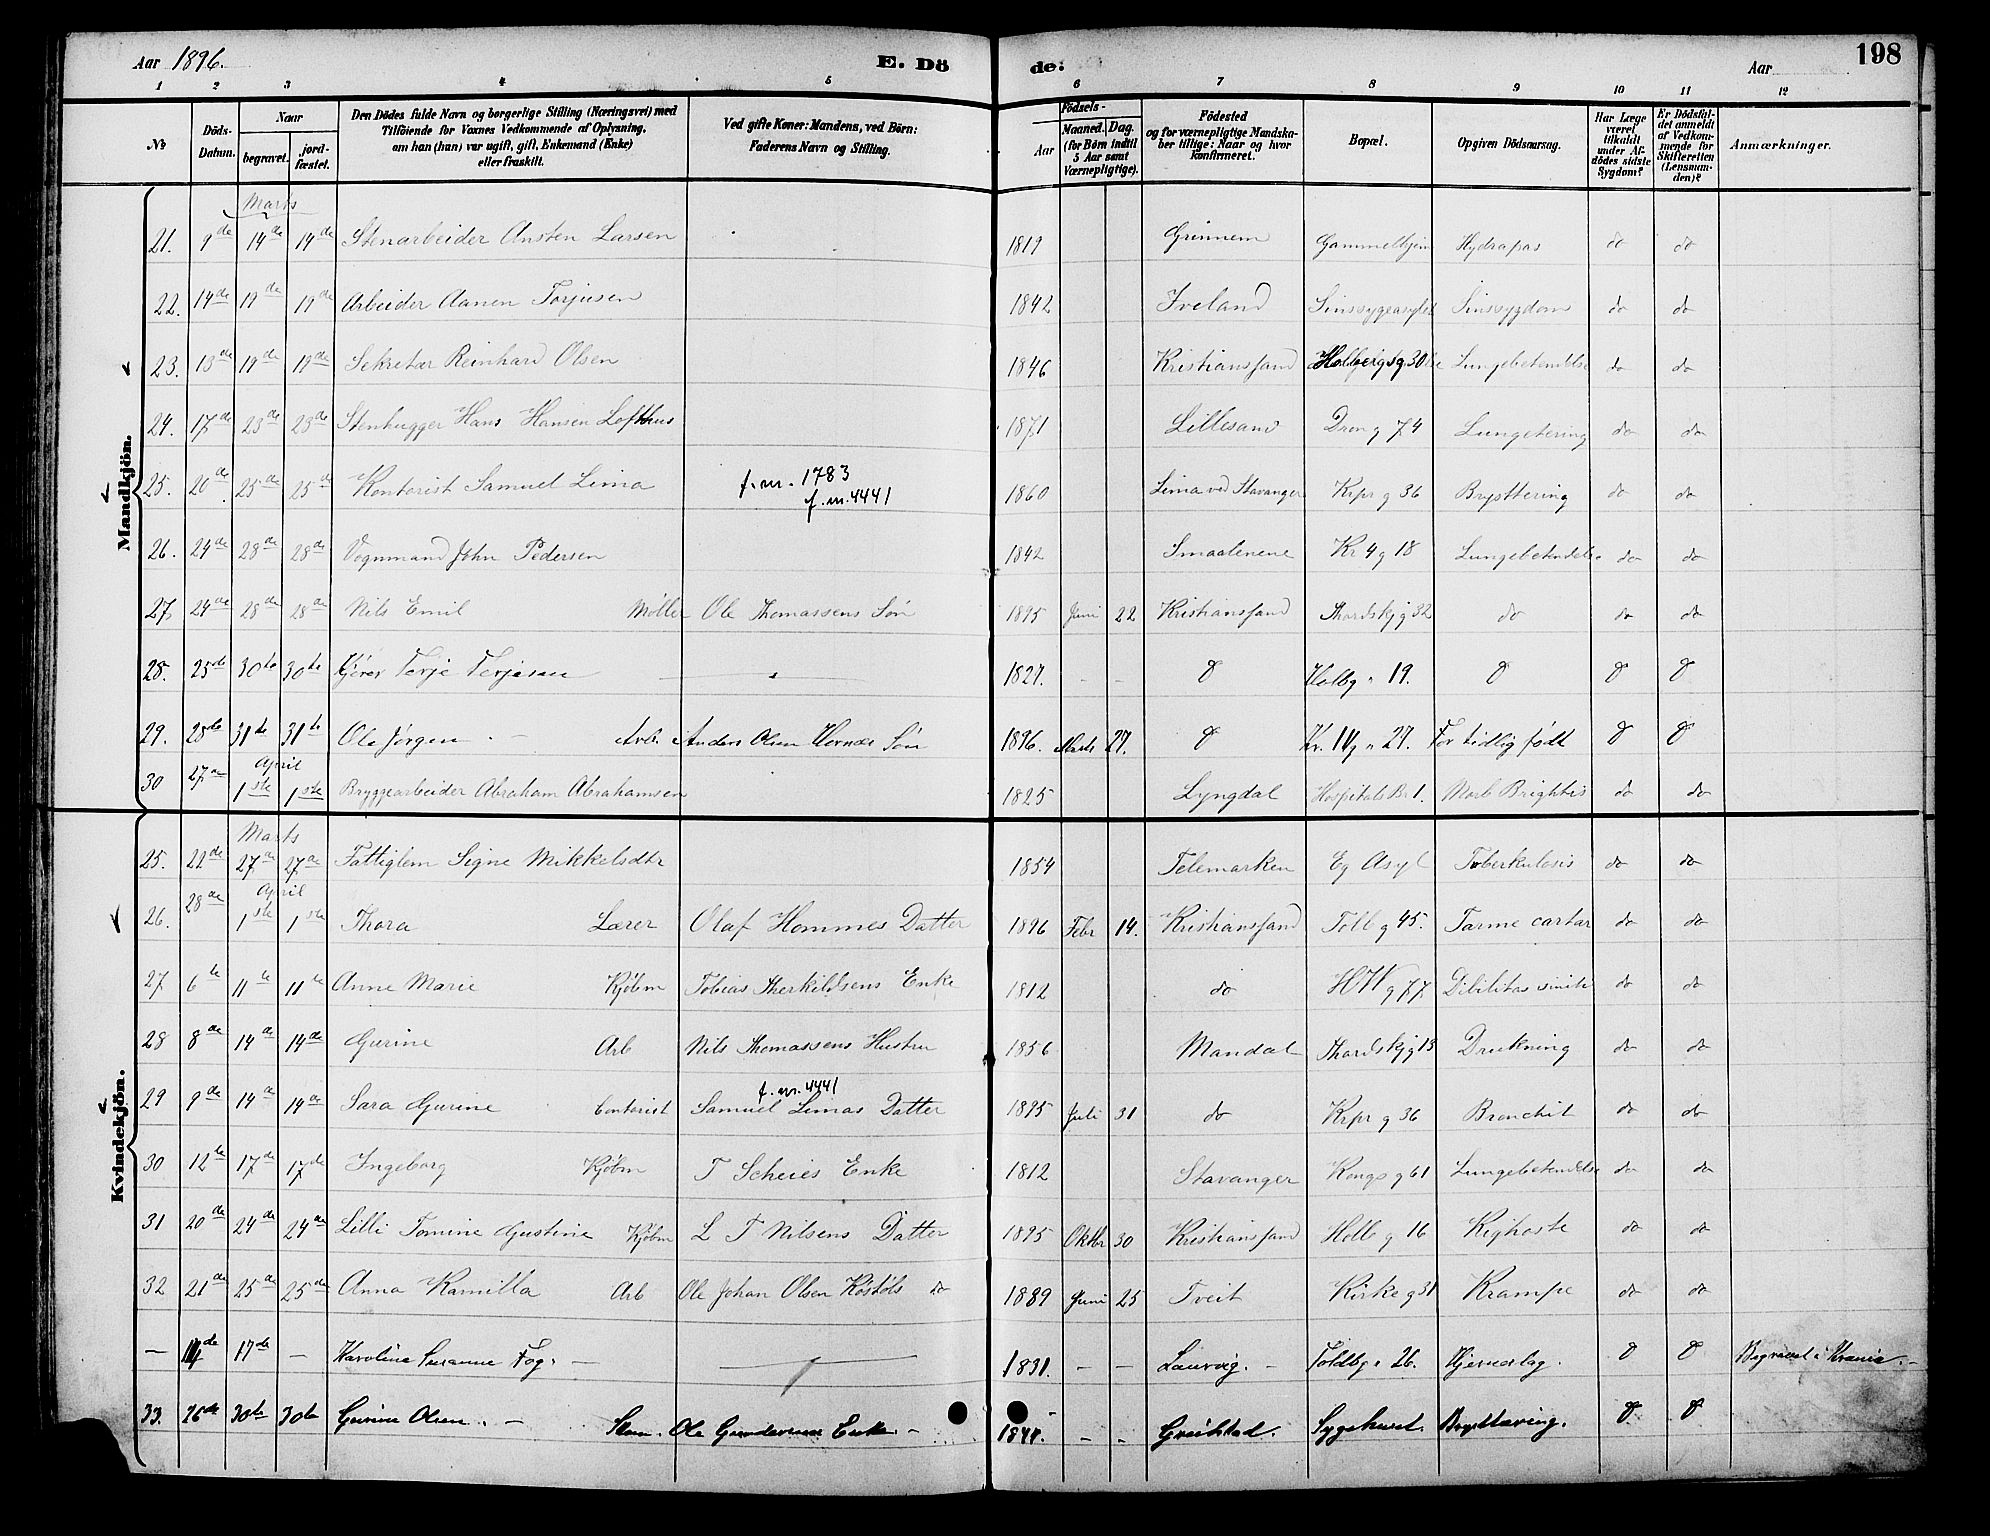 Aar 1896. E. Dö de: Aar 198
1 2 3 4 5 6 7 8 9 10 11 12
No | Döds-Datum. | Naar begravet. | jordfæstet. | Den Dödes fulde Navn og borgerlige Stilling (Næringsvei) med Tilföiende for Voxnes Vedkommende af Oplysning, om han (hun) var ugift, gift, Enkemand (Enke) eller fraskilt. | Ved gifte Koner: Mandens, ved Börn: Faderens Navn og Stilling. | Födsels- Aar | Maaned. Dag. (for Börn indtil 5 Aar samt Værnepligtige). | Födested og for værnepligtige Mandskaber tillige: Naar og hvor konfirmeret. | Bopæl. | Opgiven Dödsaarsag. | Har Læge været tilkaldt under Afdödes sidste Sygdom? | Er Dödsfaldet anmeldt af Vedkommende for Skifteretten (Lensmanden)? | Anmærkninger.
Mandkjön.
Marts
21. 9de 14de 14de Stenarbeider Ansten Larsen 1819 Grimnem Hydrops do do
22. 14de 19de 19de Arbeider Aanen Torjusen 1842 Iveland Sinssygeasylet Sinssygdom do do
23. 13de 19de 19de Sekretær Reinhard Olsen 1846 Kristianssand Holbergsg 30 Lungebetændelse do do
24. 17de 23de 23de Stenhugger Hans Hansen Lofthus 1871 Lillesand Dron g 74 Lungetering do do
25. 20de 25de 25de Kontorist Samuel Lima f.nr. 1783 f.nr.4441 1860 Lima ved Stavanger Krpr g 36 Brysttering do do
26. 24de 28de 28de Vognmand John Pedersen 1842 Smaalenene Kr 4 g 18 Lungebetændelse do do
27 24de 28de 28de Nils Emil Møller Ole Thomassens Søn 1895 Juni 22 Kristianssand Thordskj g 32 do do do
28. 25de 30te 30te Terje Terjesen 1827. - - Holbg " 19.
29. 28de 31te 31te Ole Jørgen - Arb. Anders Olsen Søn 1896. Marts 27. Kr. IVg " 27. For tidlig født
April
30 27de 1ste 1ste Bryggearbeider Abraham Abrahamsen 1825 Lyngdal Hospitals Br 1. Morb Brightis do do
Kvindekjön.
Marts
25. 22de 27de 27de Fattiglem Signe Mikkelsdtr 1854 Telemarken Eg Asyl Tuberkulosis do do
April
26. 28de 1ste 1ste Thora Lærer Olaf Hommes Datter 1896 Febr 14. Kristianssand Tolb g 45. Tarme cartar do do
27 6te 11te 11te Anne Marie Kjøbm Tobias Therkildsens Enke 1812 do HW g 77. do do
28 8de 14de 14de Gurine Arb Nils Thomassens Hustru 1856 Mandal Thordskj g 13 Drukning do do
29 9de 14de 14de Sara Gurine Contorist Samuel Limas Datter f.nr.4441 1895 Juli 31 do Krpr g 36 Bronchit do do
30 12te 17de 17de Ingeborg Kjøbm T Scheies Enke 1812 Stavanger Kongs g 61 Lungebetændelse do do
31 20de 24de 24de Lilli Tomine Gustine Kjøbm L T Nilsens Datter 1895 Oktbr 30 Kristianssand Holb g 16 Kighoste do do
32 21de 25de 25de Anna Kamilla Arb Ole Johan Olsen Køstøls do 1889 Juni 25 Tveit Kirke g 31 Krampe do do
- 14de 17de - Karoline Susanne Fog. - 1831. - - Laurvig. - Toldbg. 26. Hjerneslag. Begravet i
33. 26de 30te 30te Gurine Olsen. - Ole Gundersens Enke - 1844. - - Grimstad. Sygehuset. Brysttæring.